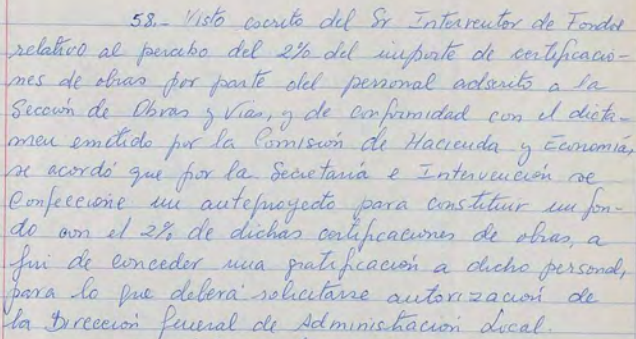 58.- Visto escrito del Sr Interventor de Fondos
relativo al percibo del 2% del importe de certificacio-
nes de obras por parte del personal adscrito a la
Sección de Obras y Vías, y de conformidad con el dicta-
men emitido por la Comisión de Hacienda y Economía,
se acordó que por la Secretaría e Intervención se
Confeccione un anteproyecto para constituir un fon-
do con el 2% de dichas certificaciones de obras, a
fin de conceder una gratificación a dicho personal,
para lo que deberá solicitarse autorización de
la Dirección General de Administración Local.